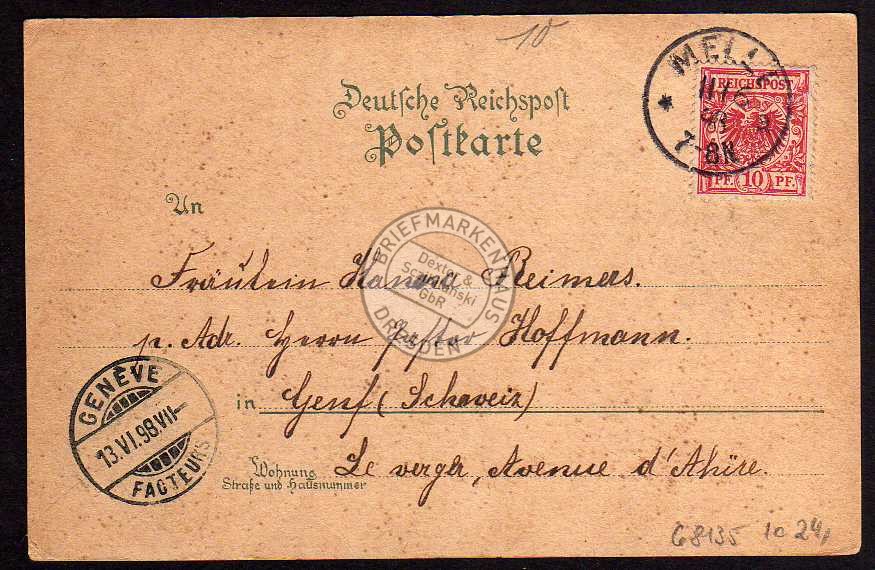 10
Deutsche Reichspost
Postkarte
MELLE
11/6
98
7-8N.
REICHSPOST
PF. 10 PF.
An
Fräulein Hanna Reimers.
p. Adr. Herrn Pastor Hoffmann.
in Genf (Schweiz)
Wohnung
Straße und Hausnummer
Le verger, Avenue d'Aïre.
GENÈVE
13.VI.98.VII-
FACTEURS
BRIEFMARKENHAUS
Dexter &
GbR
DRESDEN
68135 10 24,